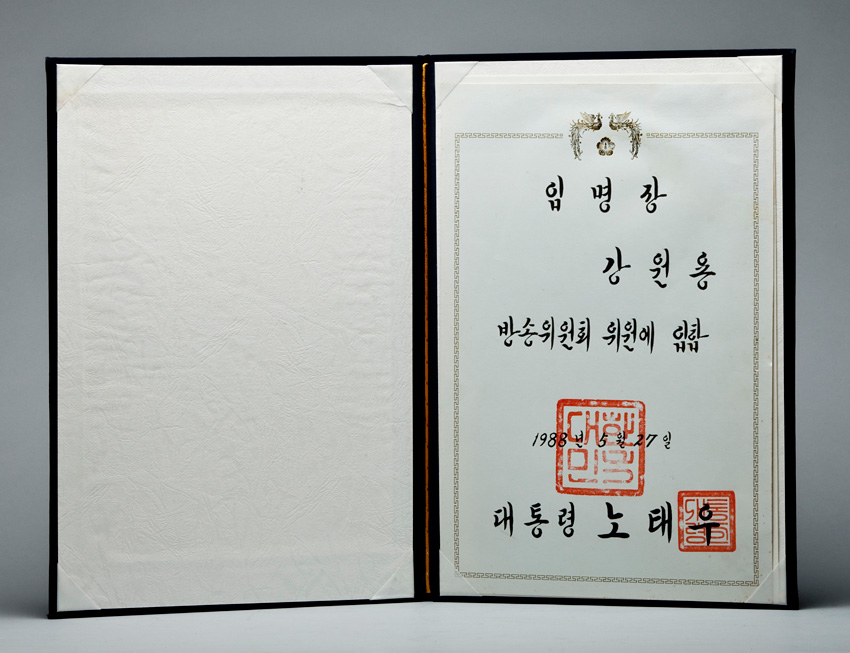 임명장
강원용
방송위원회 위원에 임함
대한
민국
1988년 5월 27일
대통령 노태우